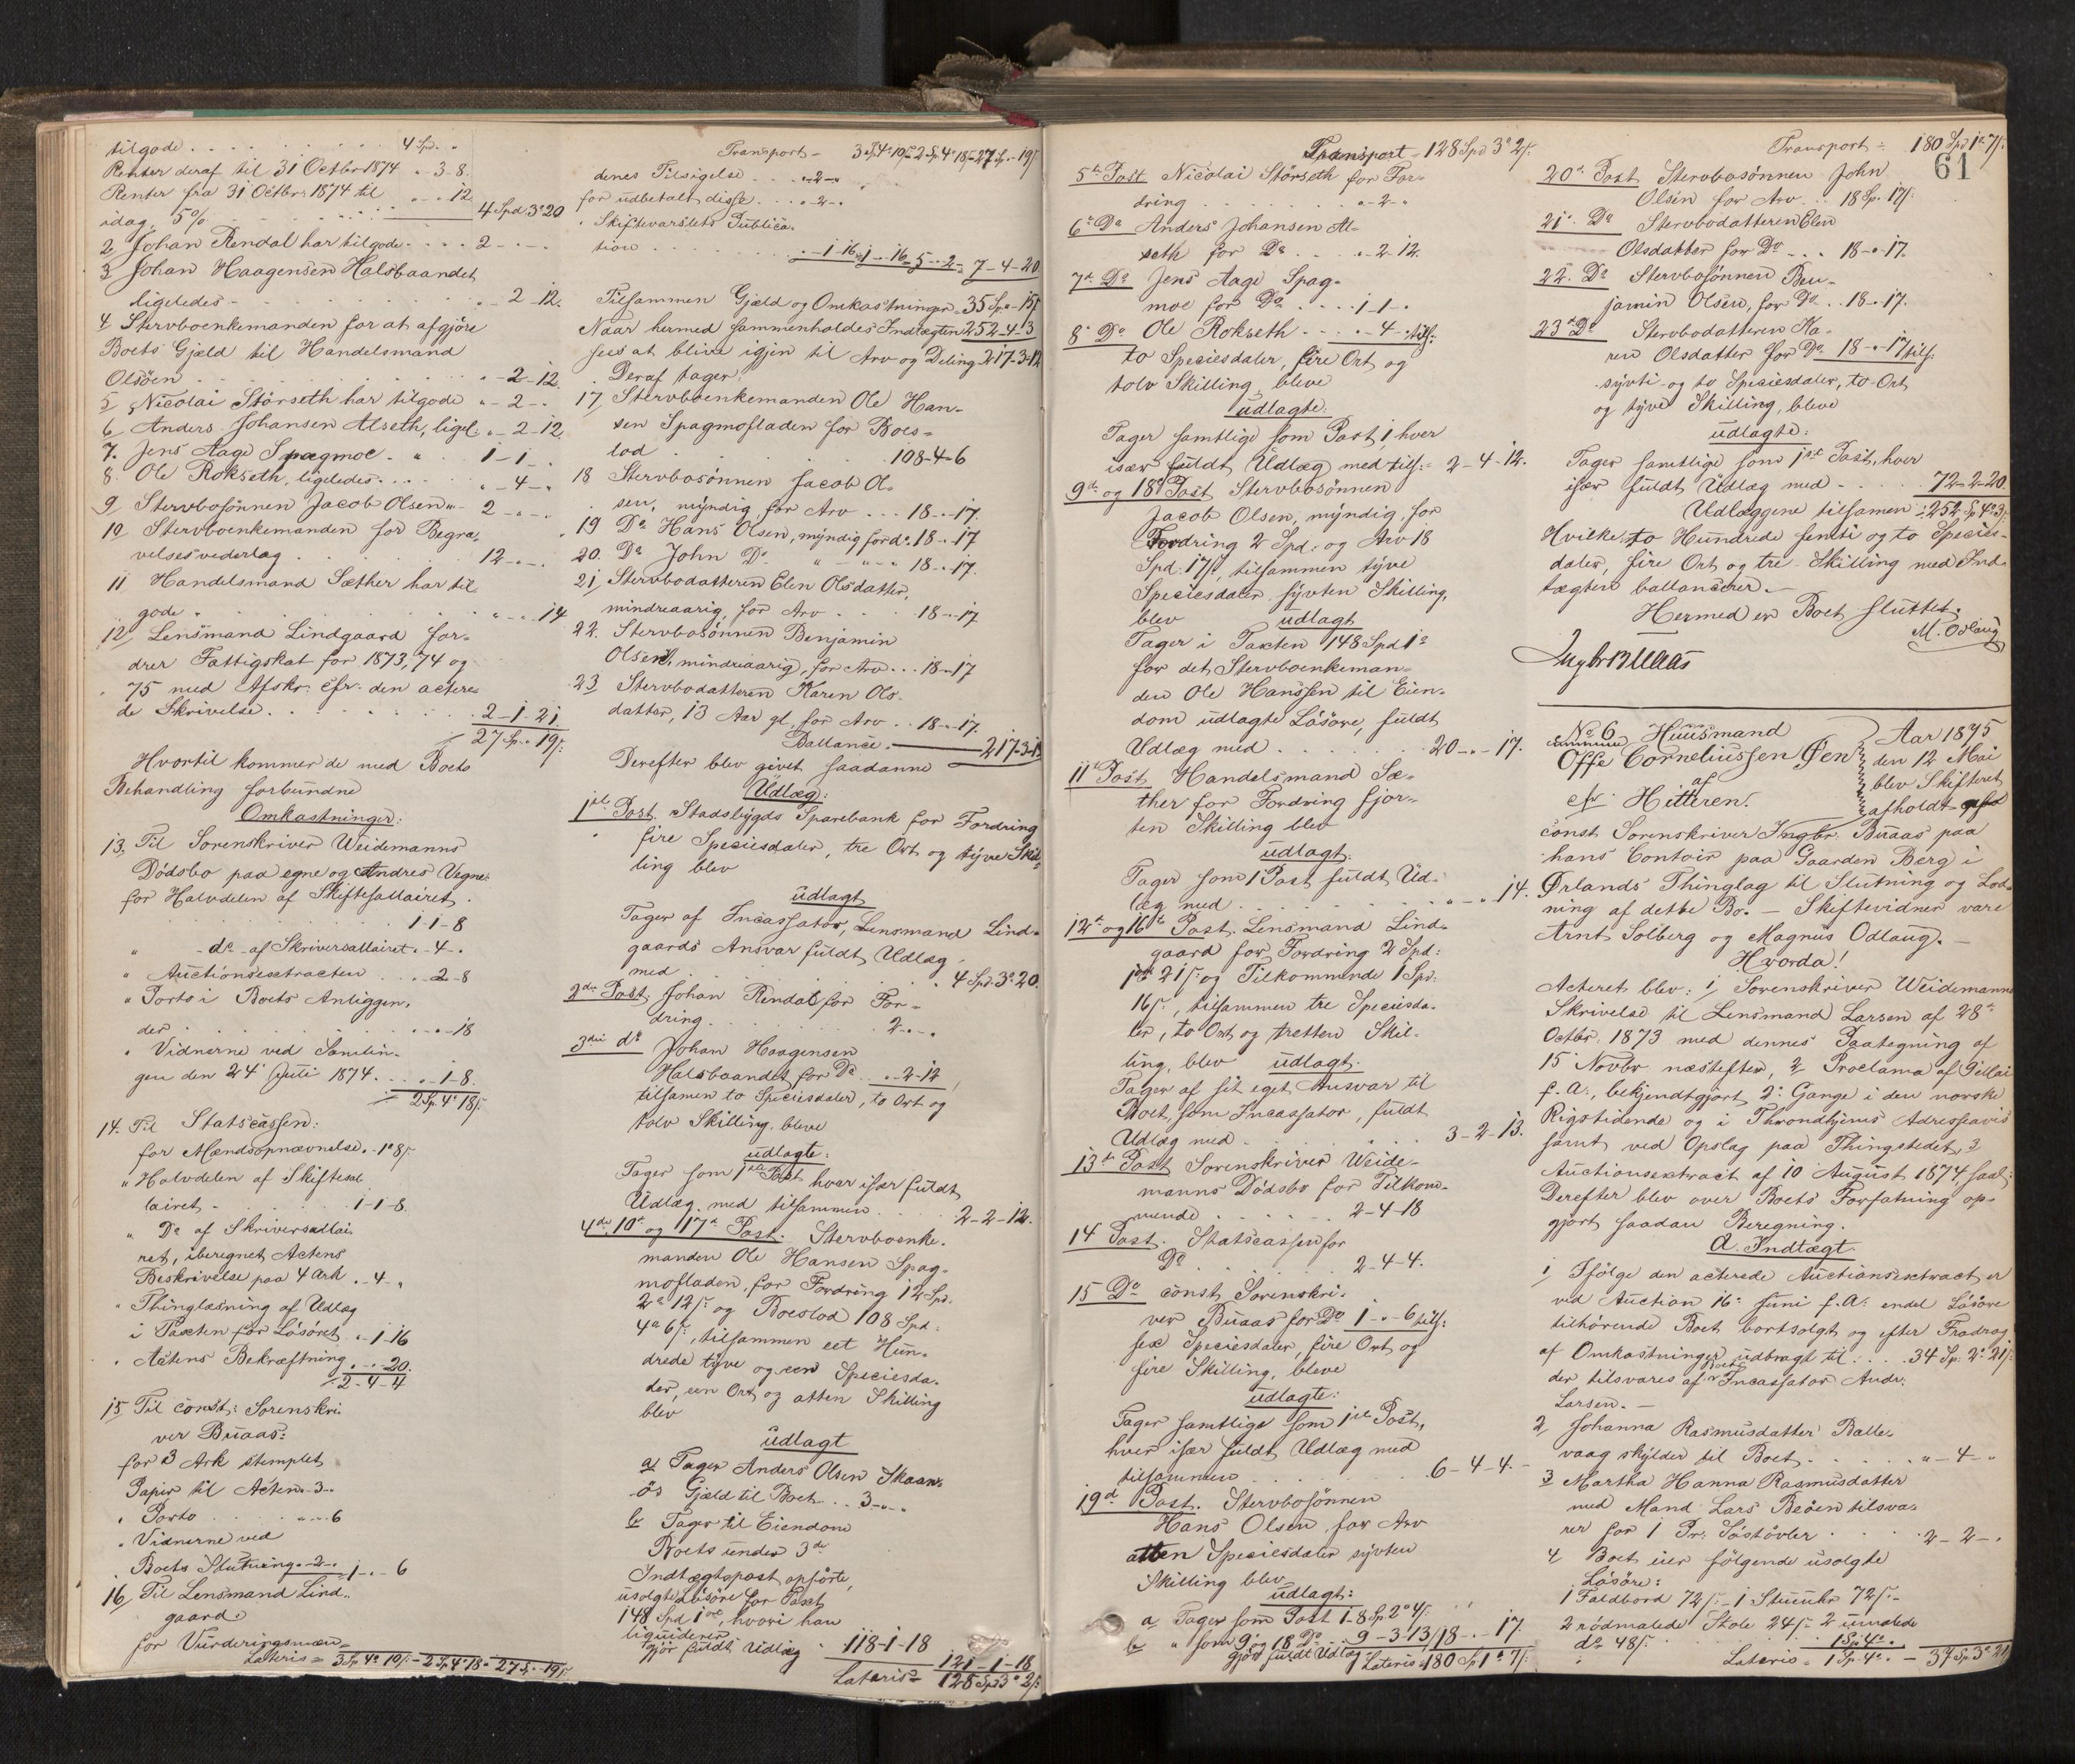 tilgode . . . 4 Spd. "
Renter deraf til 31 Octbr 1874 " 3-8.
Renter fra 31 Octbr. 1874 til
idag, 5% . . . " " 12 4 Spd 3 " 20
2 Johan Rendal har tilgode . . . 2 - " - "
3 Johan Haagensen Halsbaandet
ligeledes - . . . " - 2 - 12.
4 Stervboenkemanden for at afgjöre
Boets Gjæld til Handelsmand
Olsöen . . . " - 2 - 12.
5 Nicolai Störseth har tilgode " - 2 - "
6 Anders Johansen Alseth, ligel. " - 2 - 12
7. Jens Aage Spagmoe . " . 1 - 1 - "
8. Ole Rokseth, ligeledes . . . " - 4 - "
9 Stervbosönnen Jacob Olsen " 2 - " - "
10 Stervboenkemanden for Begra-
velsesvederlag . . . 12 - " - "
11 Handelsmand Sæther har til
gode . . . " - " - 14
12 Lensmand Lindgaard for-
drer Fattigskat for 1873, 74 og
75 med Afskr. cfr. den actere-
de Skrivelse . . . 2 - 1 - 21.
27 Sp. " 19 ß.
Hvortil kommer de med Boets
Behandling forbundne
Omkostninger:
13, Til Sorenskriver Weidemanns
Dödsbo paa egne og Andres Vegne:
for Halvdelen af Skiftesallairet .
1-1-8
" do af Skriversallairet " 4 - "
" Auctionsextracten . . . 2-8
" Porto i Boets Anliggen-
der . . . " - " - 18
" Vidnerne ved Samlin-
gen den 24 Juli 1874 . . . " - 1-8.
2 Sp. 4 " 18 ß.
14. Til Statscassen:
for Mændsopnævnelse . " 1 " 8 ß
" Halvdelen af Skiftesal
lairet . . . 1-1-8.
" Do af Skriversallai-
ret, iberegnet Actens
Beskrivelse paa 4 Ark . " 4 - "
" Thinglæsning af Udlæg
i Taxten for Lösöret " - 1-16
" Actens Bekræftning " - " 20.
2 - 4 - 4
15 Til const: Sorenskri-
ver Buaas:
for 3 Ark stemplet
Papir til Acten " 3 - "
" Porto . . . " - " 6
" Vidnerne ved
Boets Slutning " - 2 - " 1 - " - 6
16, Til Lensmand Lind-
gaard:
for Vurderingsmæn-
Lateris = 3 Sp. 4 " 10 ß - 2 Sp. 4 " 18 = 27 Sp. " 19 ß
Transport - 3 Sp. 4 " 10 ß 2 Sp. 4 " 18 ß 27 Sp. " 19 ß
denes Tilsigelse . . . " - 2 - "
for udbetalt disse . . . " - 2 - "
" Skiftevarslets Publica-
tion . . . " - 1 - 16 1 - " - 16 5 - " - 2 7 - 4 - 20
Tilsammen Gjæld og Omkostninger 35 Sp. " 15 ß
Naar hermed sammenholdes Indtægten 252-4-3
sees at blive igjen til Arv og Deling 217-3-12
Deraf tager:
17, Stervboenkemanden Ole Han-
sen Spagmofladen for Boes-
lod . . . 108-4-6
18 Stervbosönnen Jacob Ol-
sen, myndig, for Arv . . . 18 - " - 17.
19 Do Hans Olsen, myndig for do. 18 - " - 17
20. Do John Do " - " - " 18 - " - 17.
21, Stervbodatteren Elen Olsdatter,
mindreaarig, for Arv . . . 18 - " - 17
22. Stervbosönnen Benjamin
Olsen, mindreaarig, for Arv . . . 18 - " - 17
23 Stervbodatteren Karen Ols-
datter, 13 Aar gl. for Arv . . 18 - " - 17.
Ballance. 217-3-12
Derefter blev givet saadanne
Udlæg:
1ste Post. Stadsbygds Sparebank for Fordring
fire Speciesdaler, tre Ort og tyve Skil-
ling blev
udlagt
Tager af Incassator, Lensmand Lind-
gaards Ansvar fuldt Udlæg
med . . . 4 Spd 3 " 20.
2den Post Johan Rendal for For-
dring . . . 2 - " - "
3die do Johan Haagensen
Halsbaandet for Do " - 2-12
tilsamen to Speciesdaler, to Ort og
tolv Skilling, bleve
udlagte:
Tager som 1ste Post hver især fuldt
Udlæg med tilsammen . . . 2-2-12.
4de, 10de og 17de Post. Stervboenke-
manden Ole Hansen Spag-
mofladen, for Fordring 12 Spd.
2 " 12 ß og Boeslod 108 Spd:
4 " 6 ß, tilsammen eet Hun-
drede tyve og een Speciesda-
der, een Ort og atten Skilling
blev
udlagt
a) Tager Anders Olsen Skaan-
ös Gjæld til Boet . . 3 - " - "
b Tager til Eiendom
Boets under 3de
Indtægtspost opförte,
usolgte Lösöre for Taxt
148 Spd 1 ort, hvori han
liquiderer
gjör fuldt Udlæg " 118-1-18
121-1-18
Lateris = 128 Spd 3 " 2 ß:
Transport = 128 Spd 3 " 2 ß.
5te Post Nicolai Störseth for For-
dring . . . " - 2 - "
6te Do Anders Johansen Al-
seth for Do . . . " - 2-12.
7de Do Jens Aage Spag-
moe for Do . . . 1 - 1 - "
8de Do Ole Rokseth . . . " - 4 - " tils:
to Speciesdaler, fire Ort og
tolv Skilling, bleve
udlagte:
Tager samtlige som Post 1, hver
især fuldt Udlæg med tils: = 2-4-12.
9de og 18de Post Stervbosönnen
Jacob Olsen, myndig, for
Fordring 2 Spd: og Arv 18
Spd. 17 ß, tilsammen tyve
Speciesdaler sytten Skilling,
blev udlagt
Tager i Taxten 148 Spd 1 "
for det Stervboenkeman-
den Ole Hanssen til Eien-
dom udlagte Lösöre, fuldt
Udlæg med . . . 20 - " - 17.
11te Post. Handelsmand Sæ-
ther for Fordring fjor-
ten Skilling blev
udlagt.
Tager som 1 Post fuldt Ud-
læg med . . . " - " - 14.
12te og 16de Post. Lensmand Lind-
gaard for Fordring 2 Spd:
1 ort 21 ß og Tilkommende 1 Spd.
16 ß, tilsammen tre Speciesda-
ler, to Ort og tretten Skil-
ling, blev udlagt.
Tager af sit eget Ansvar til
Boet, som Incassator, fuldt
Udlæg med . . . 3-2-13.
13de Post Sorenskriver Weide-
manns Dödsbo for Tilkom-
mende . . . 2-4-18
14 Post. Statscassen for
Do . . . 2-4-4.
15 Do const. Sorenskri-
ver Buaas for Do 1 - " - 6 tils:
sex Speciesdaler, fire Ort og
fire Skilling, bleve
udlagte:
Tager samtlige som 1ste Post,
hver især fuldt Udlæg med
tilsammen . . . 6-4-4.
19de Post. Stervbosönnen
Hans Olsen for Arv
atten Speciesdaler sytten
Skilling blev
udlagt:
a Tager som Post 1 - 8 Sp. 2 " 4 ß.
b " som 9 og 18 Do 9-3-13 / 18 - " - 17.
gjör fuldt Udlæg
Lateris = 180 Sp 1 " 7 ß.
Transport = 180 Spd 1 " 7 ß
61
20de Post Stervbosönnen John
Olsen for Arv . . 18 Sp. 17 ß.
21. Do Stervbodatteren Elen
Olsdatter for Do . . . 18 - " - 17.
22. Do Stervbosönnen Ben-
jamin Olsen, for Do . . 18 - " - 17.
23de Do Stervbodatteren Ka-
ren Olsdatter for Do 18 - " - 17 tils:
sytti og to Speciesdaler, to Ort
og tyve Skilling, bleve
udlagte:
Tager samtlige som 1ste Post, hver
især fuldt Udlæg med . . . 72-2-20.
Udlæggene tilsamen = 252 Sp 4 " 3 ß:
Hvilke to Hundrede femti og to Species-
daler, fire Ort og tre Skilling med Ind-
tægten ballancerer.
Hermed er Boet sluttet.
M. Odlaug
Ingbr Buaas
No 6 Huusmand
Offe Corneliussen Öen
af
Hitteren.
Aar 1875
den 12 Mai
blev Skifteret
afholdt af
const Sorenskriver Ingbr. Buaas paa
hans Contoir paa Gaarden Berg i
Ørlands Thinglag til Slutning og Lod-
ning af dette Bo. - Skiftevidner vare
Arnt Solberg og Magnus Odlaug.
Hvorda!
Acteret blev: 1, Sorenskriver Weidemanns
Skrivelse til Lensmand Larsen af 28de
Octbr. 1873 med dennes Paategning af
15 Novbr. næstefter, 2 Proclama af 9 Mai
f. A., bekjendtgjort 2de Gange i den norske
Rigstidende og i Throndhjems Adresseavis
samt ved Opslag paa Thingstedet, 3
Auctionsextract af 10 August 1874, saal:
Derefter blev over Boets Forfatning op-
gjort saadan Beregning.
A. Indtægt.
1, Ifölge den acterede Auctionsextract er
ved Auction 16de Juni f. A. endel Lösöre
tilhörende Boet bortsolgt og efter Fradrag
af Omkostninger udbragt til . . . 34 Sp. 2 " 21 ß.
der tilsvares af Boets Incassator Andr.
Larsen. -
2, Johanna Rasmusdatter Balle-
vaag skylder til Boet . . . " - 4 - "
3 Martha Hanna Rasmusdatter
med Mand Lars Beöen tilsva-
rer for 1 Pr: Söstövler . . . 2-2- "
4 Boet eier fölgende usolgte
Lösöre:
1 Faldbord 72 ß - 1 Stuuhr 72 ß -
2 rödmalede Stole 24 ß 2 umalede
do 48 ß. . . . 1 Sp. 4 " "
Lateris = 1 Sp. 4 " " - 37 Sp. 3 " 21